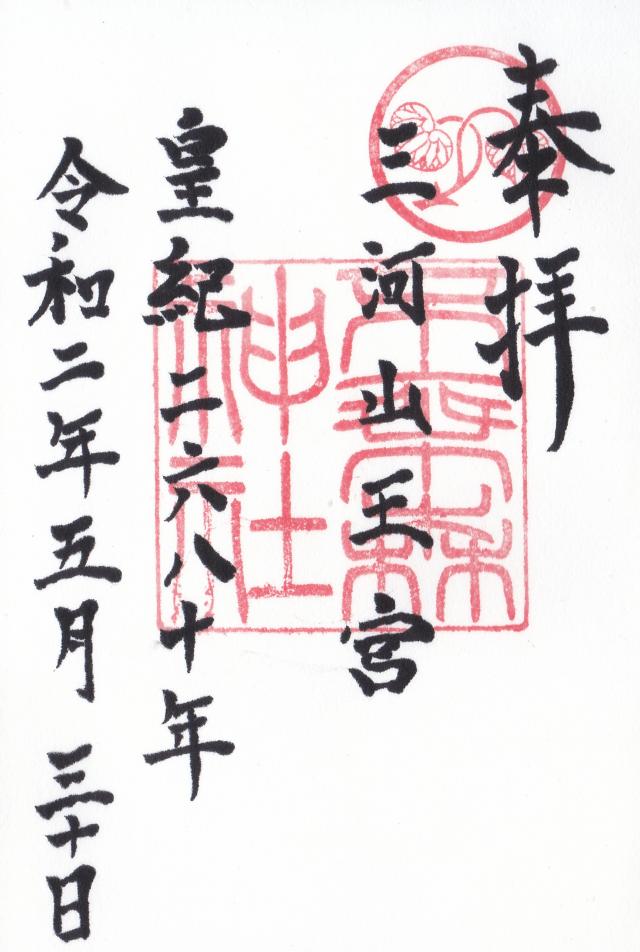 奉拝
三河山王宮
皇紀二六八十年
令和二年五月三十日
神社